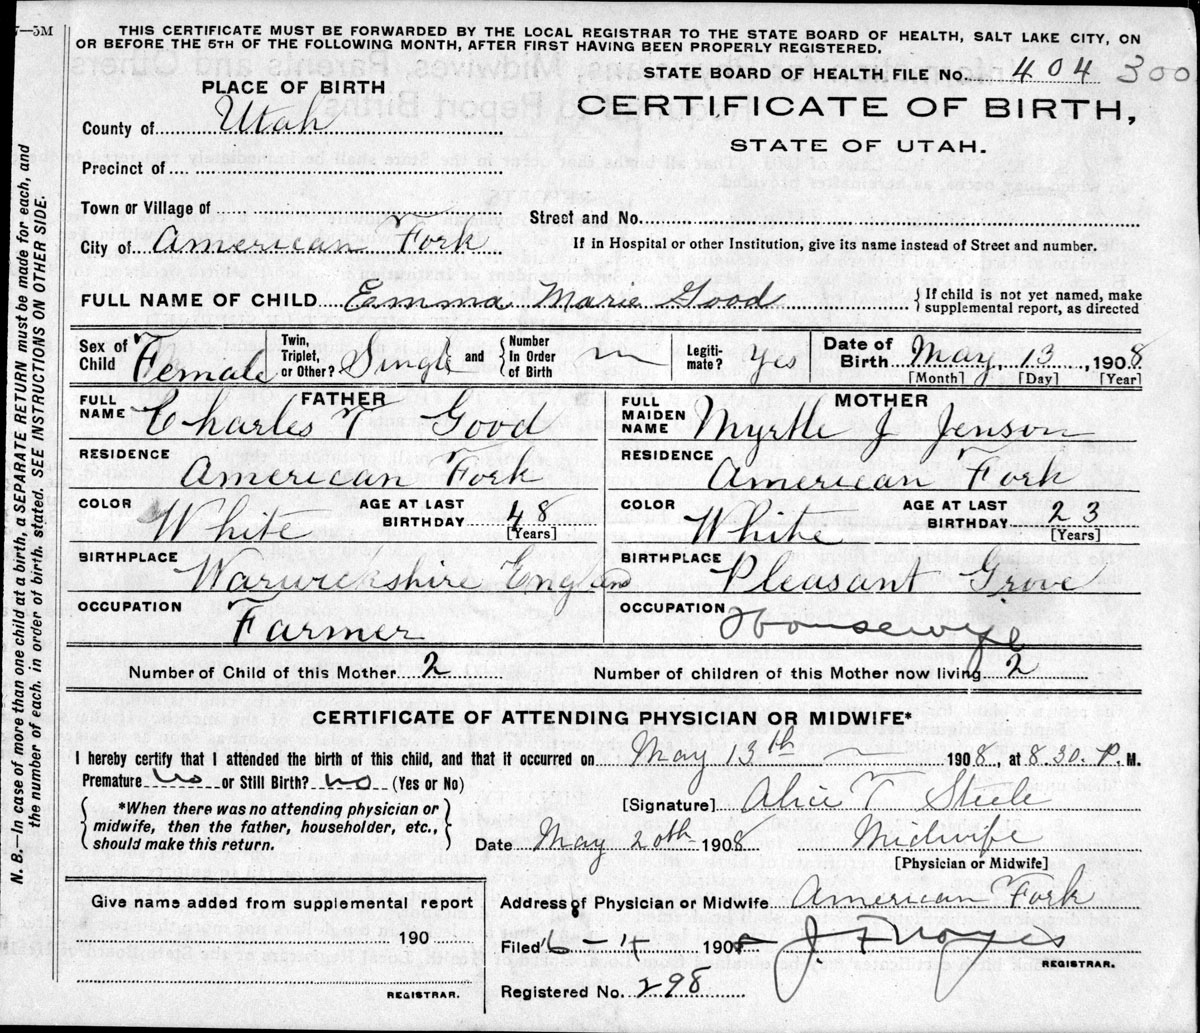 —5M
THIS CERTIFICATE MUST BE FORWARDED BY THE LOCAL REGISTRAR TO THE STATE BOARD OF HEALTH, SALT LAKE CITY, ON
OR BEFORE THE 5TH OF THE FOLLOWING MONTH, AFTER FIRST HAVING BEEN PROPERLY REGISTERED.
STATE BOARD OF HEALTH FILE No. 404 300
PLACE OF BIRTH
CERTIFICATE OF BIRTH,
STATE OF UTAH.
County of Utah
Precinct of
Town or Village of
Street and No.
City of American Fork
If in Hospital or other Institution, give its name instead of Street and number.
FULL NAME OF CHILD Emma Marie Good { If child is not yet named, make supplemental report, as directed
Sex of Child Female Twin, Triplet, or Other? Single and { Number In Order of Birth Legiti-mate? Yes Date of Birth May, 13, 1908
[Month] [Day] [Year]
FATHER
FULL NAME Charles T Good
MOTHER
FULL MAIDEN NAME Myrtle J Jenson
RESIDENCE American Fork
RESIDENCE American Fork
COLOR White AGE AT LAST BIRTHDAY 48 [Years]
COLOR White AGE AT LAST BIRTHDAY 23 [Years]
BIRTHPLACE Warwickshire England
BIRTHPLACE Pleasant Grove
OCCUPATION Farmer
OCCUPATION Housewife
Number of Child of this Mother 2
Number of children of this Mother now living 2
CERTIFICATE OF ATTENDING PHYSICIAN OR MIDWIFE*
I hereby certify that I attended the birth of this child, and that it occurred on May 13th 1908, at 8.30. P.M.
Premature no or Still Birth? no (Yes or No)
*When there was no attending physician or
midwife, then the father, householder, etc.,
should make this return.
[Signature] Alice T Steele
Date May 20th 1908 Midwife
[Physician or Midwife]
Give name added from supplemental report
190
REGISTRAR.
Address of Physician or Midwife American Fork
Filed 6 - 4 1908 J. F Noyes
REGISTRAR.
Registered No. 298
N. B.—In case of more than one child at a birth, a SEPARATE RETURN must be made for each, and
the number of each, in order of birth, stated. SEE INSTRUCTIONS ON OTHER SIDE.